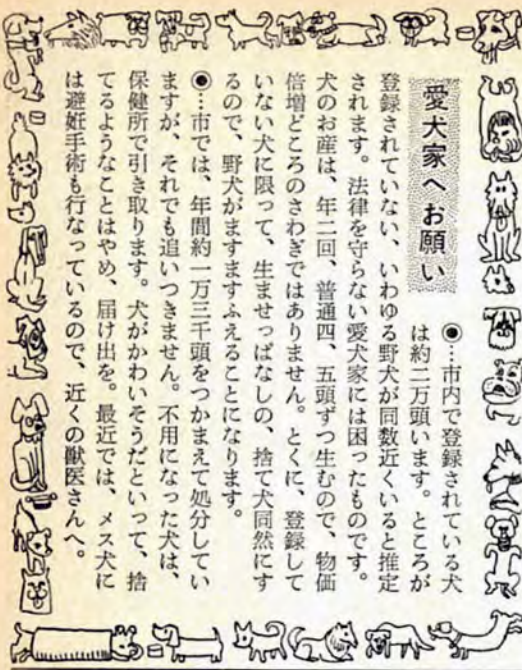 愛犬家へお願い
◉…市内で登録されている犬
は約二万頭います。ところが
登録されていない、いわゆる野犬が同数近くいると推定
されます。法律を守らない愛犬家には困ったものです。
犬のお産は、年二回、普通四、五頭ずつ生むので、物価
倍増どころのさわぎではありません。とくに、登録して
いない犬に限って、生ませっぱなしの、捨て犬同然にす
るので、野犬がますますふえることになります。
◉…市では、年間約一万三千頭をつかまえて処分してい
ますが、それでも追いつきません。不用になった犬は、
保健所で引き取ります。犬がかわいそうだといって、捨
てるようなことはやめ、届け出を。最近では、メス犬に
は避妊手術も行なっているので、近くの獣医さんへ。